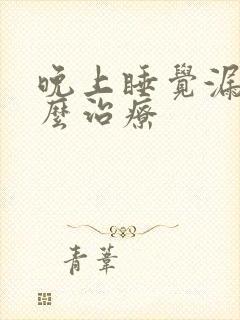 晚上睡覺漏
麼治療
青葦